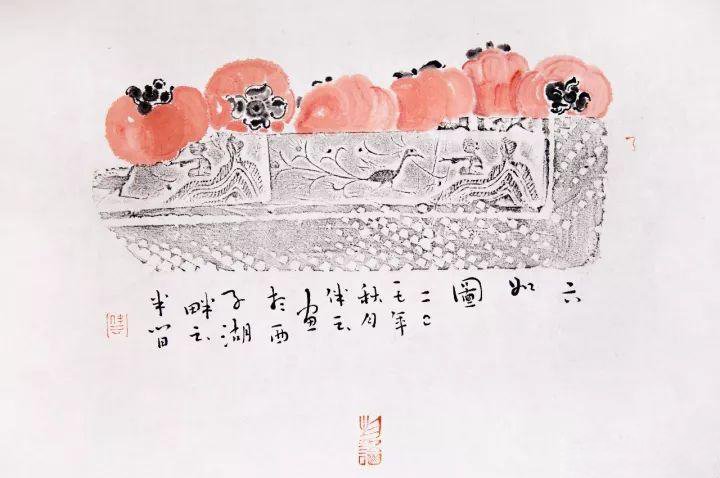 六
如
圖
二〇
一七年
秋月
之
畫
於西
子湖
畔之
半間